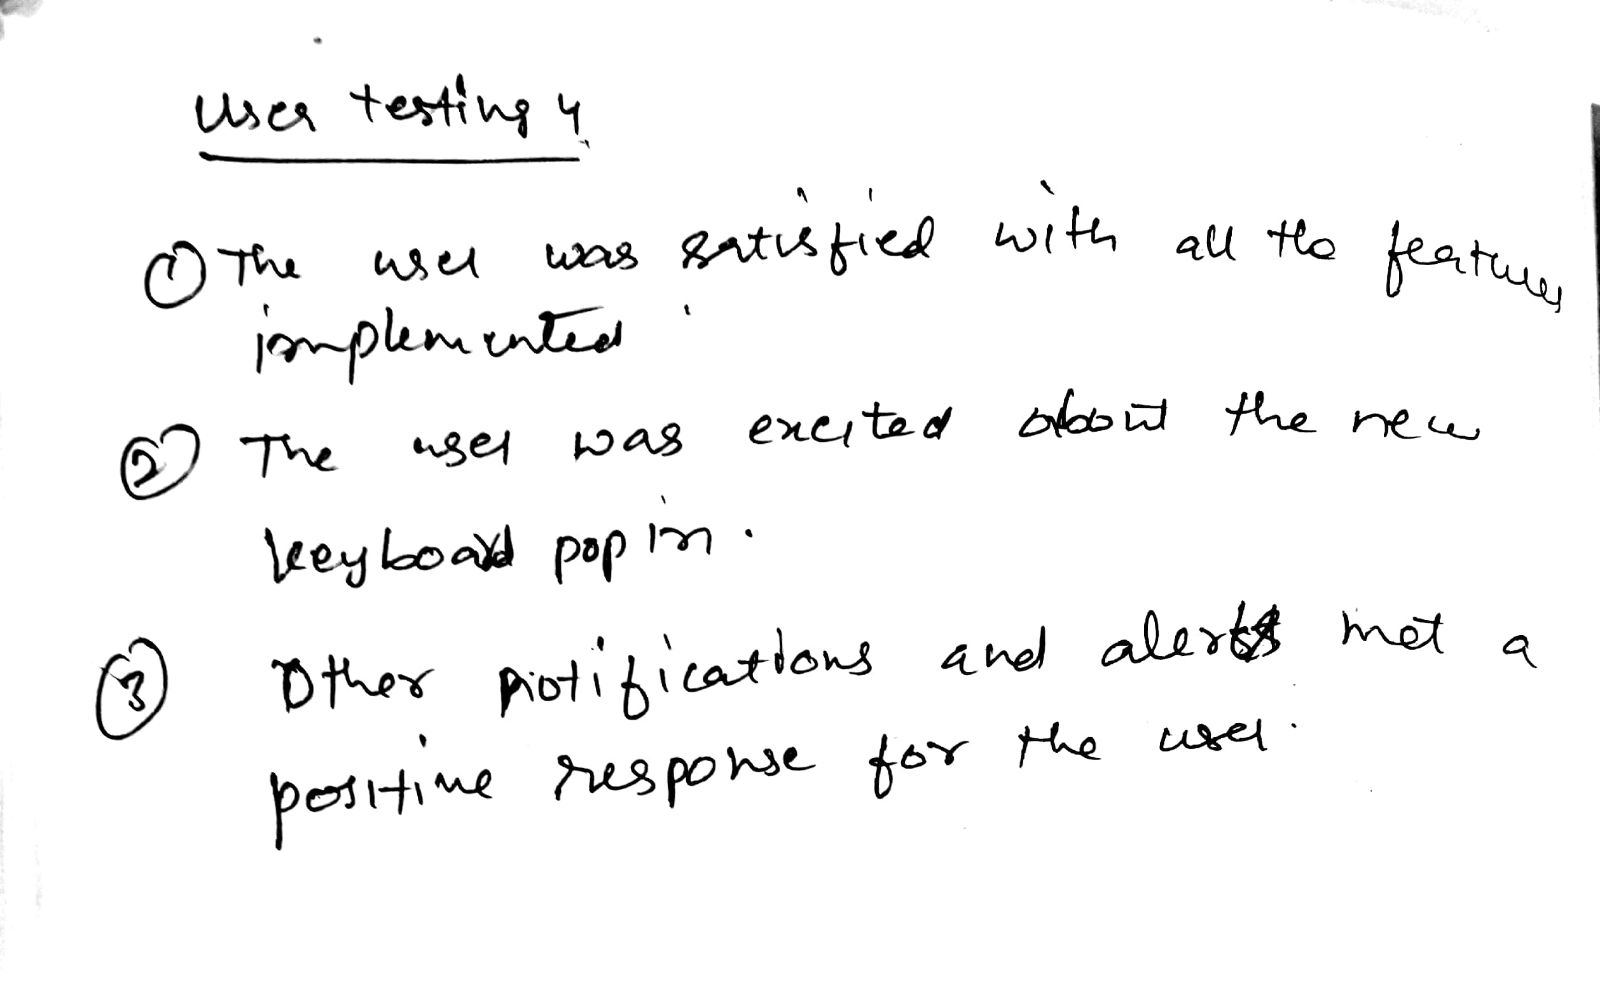 User testing 4
① The user was satisfied with all the features
implemented
② The user was excited about the new
keyboard pop in.
③ Other notifications and alerts met a
positive response for the user.